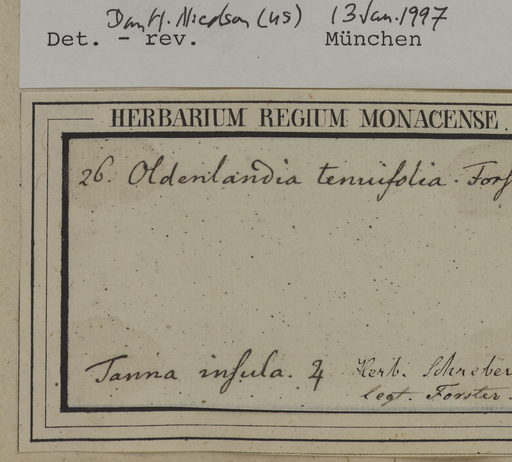 Dan H. Nicolson (US) 13 Jan. 1997
Det. - rev. München
HERBARIUM REGIUM MONACENSE.
26. Oldenlandia tenuifolia. Forſ
Tanna inſula. ♃ Herb. Schreber
legt. Forster.